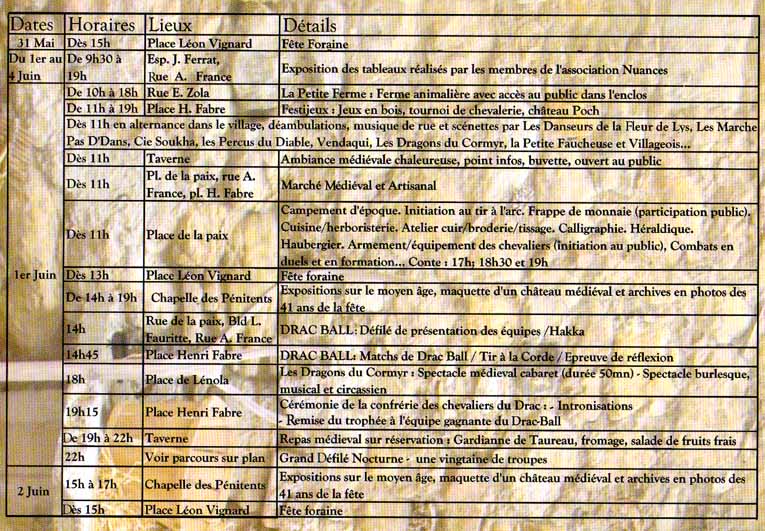 Dates Horaires Lieux Détails
31 Mai Dès 15h Place Léon Vignard Fête Foraine
Du 1er au 4 Juin De 9h30 à 19h Esp. J. Ferrat, Rue A. France Exposition des tableaux réalisés par les membres de l'association Nuances
1er Juin
De 10h à 18h Rue E. Zola La Petite Ferme : Ferme animalière avec accès au public dans l'enclos
De 11h à 19h Place H. Fabre Festijeux : Jeux en bois, tournoi de chevalerie, château Poch
Dès 11h en alternance dans le village, déambulations, musique de rue et scénettes par Les Danseurs de la Fleur de Lys, Les Marche
Pas D'Dans, Cie Soukha, les Percus du Diable, Vendaqui, Les Dragons du Cormyr, la Petite Faucheuse et Villageois...
Dès 11h Taverne Ambiance médiévale chaleureuse, point infos, buvette, ouvert au public
Dès 11h Pl. de la paix, rue A. France, pl. H. Fabre Marché Médiéval et Artisanal
Dès 11h Place de la paix Campement d'époque. Initiation au tir à l'arc. Frappe de monnaie (participation public).
Cuisine/herboristerie. Atelier cuir/broderie/tissage. Calligraphie. Héraldique.
Haubergier. Armement/équipement des chevaliers (initiation au public), Combats en
duels et en formation... Conte : 17h; 18h30 et 19h
Dès 13h Place Léon Vignard Fête foraine
De 14h à 19h Chapelle des Pénitents Expositions sur le moyen âge, maquette d'un château médiéval et archives en photos des
41 ans de la fête
14h Rue de la paix, Bld L. Fauritte, Rue A. France DRAC BALL: Défilé de présentation des équipes /Hakka
14h45 Place Henri Fabre DRAC BALL: Matchs de Drac Ball / Tir à la Corde / Epreuve de réflexion
18h Place de Lénola Les Dragons du Cormyr : Spectacle médiéval cabaret (durée 50mn) - Spectacle burlesque,
musical et circassien
19h15 Place Henri Fabre Cérémonie de la confrérie des chevaliers du Drac : - Intronisations
- Remise du trophée à l'équipe gagnante du Drac-Ball
De 19h à 22h Taverne Repas médiéval sur réservation : Gardianne de Taureau, fromage, salade de fruits frais
22h Voir parcours sur plan Grand Défilé Nocturne - une vingtaine de troupes
2 Juin
15h à 17h Chapelle des Pénitents Expositions sur le moyen âge, maquette d'un château médiéval et archives en photos des
41 ans de la fête
Dès 15h Place Léon Vignard Fête foraine